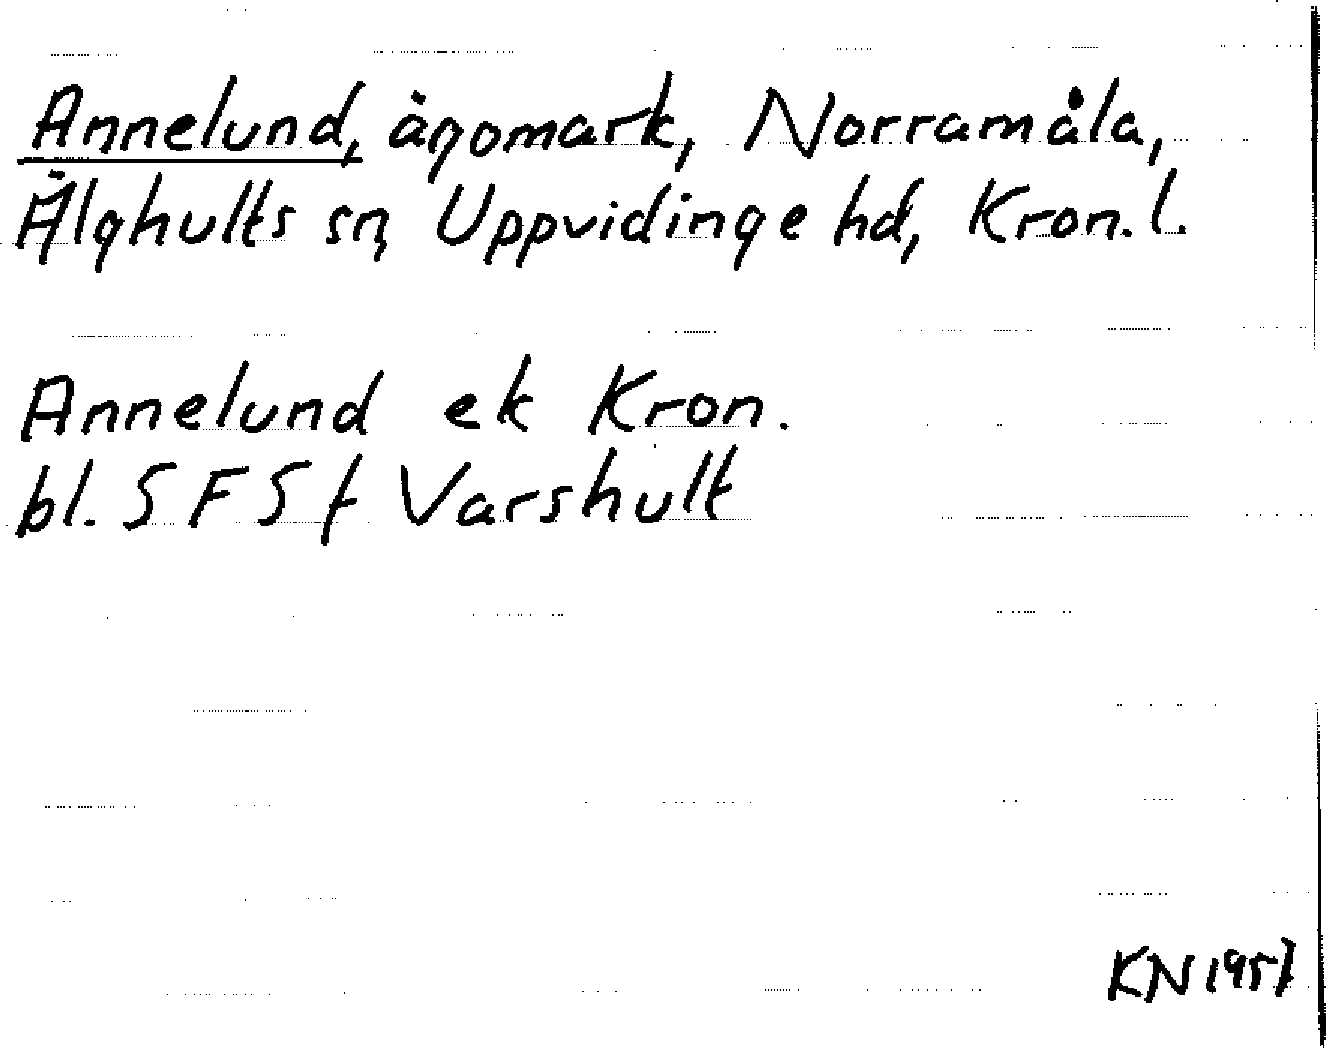 Annelund, ägomark, Norramåla,
Älghults sn, Uppvidinge hd, Kron. l.
Annelund ek Kron.
bl. 5 F 5 f Varshult
KN 1957